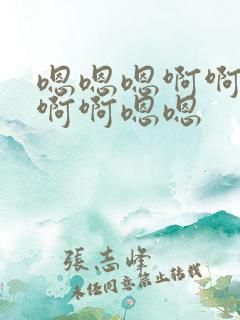 嗯嗯嗯啊啊
啊啊嗯嗯
張志峰
未经同意禁止转载